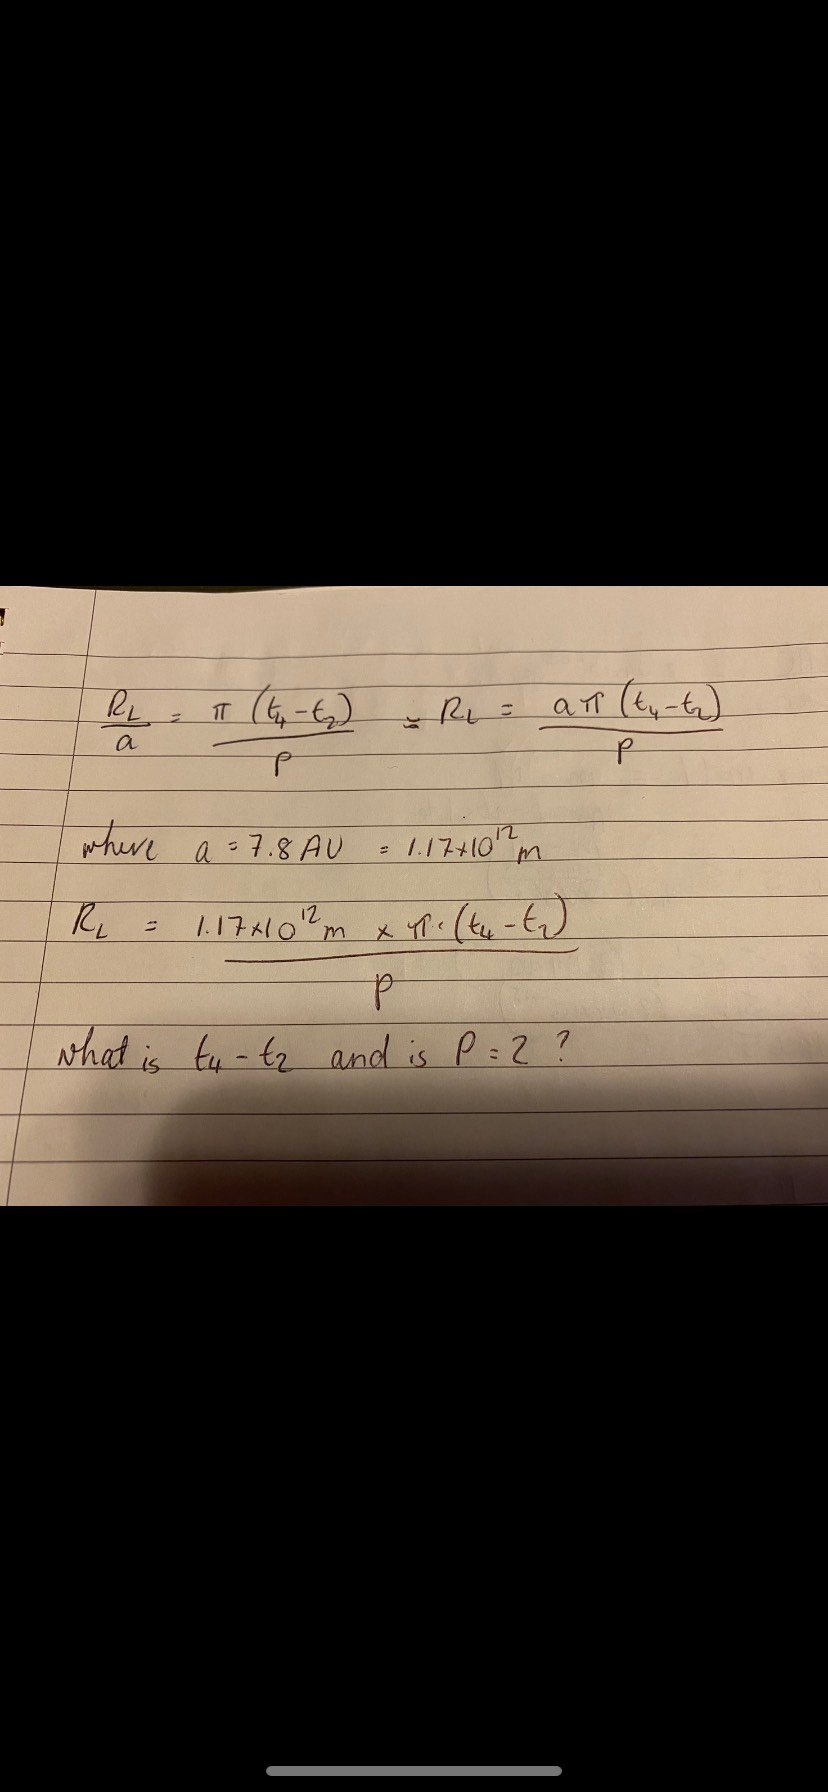 R_L/a = π (t₄-t₂)/P ≃ R_L = aπ (t₄-t₂)/P
where a = 7.8 AU = 1.17×10¹² m
R_L = 1.17×10¹² m × π · (t₄-t₂)/P
what is t₄-t₂ and is P = 2 ?